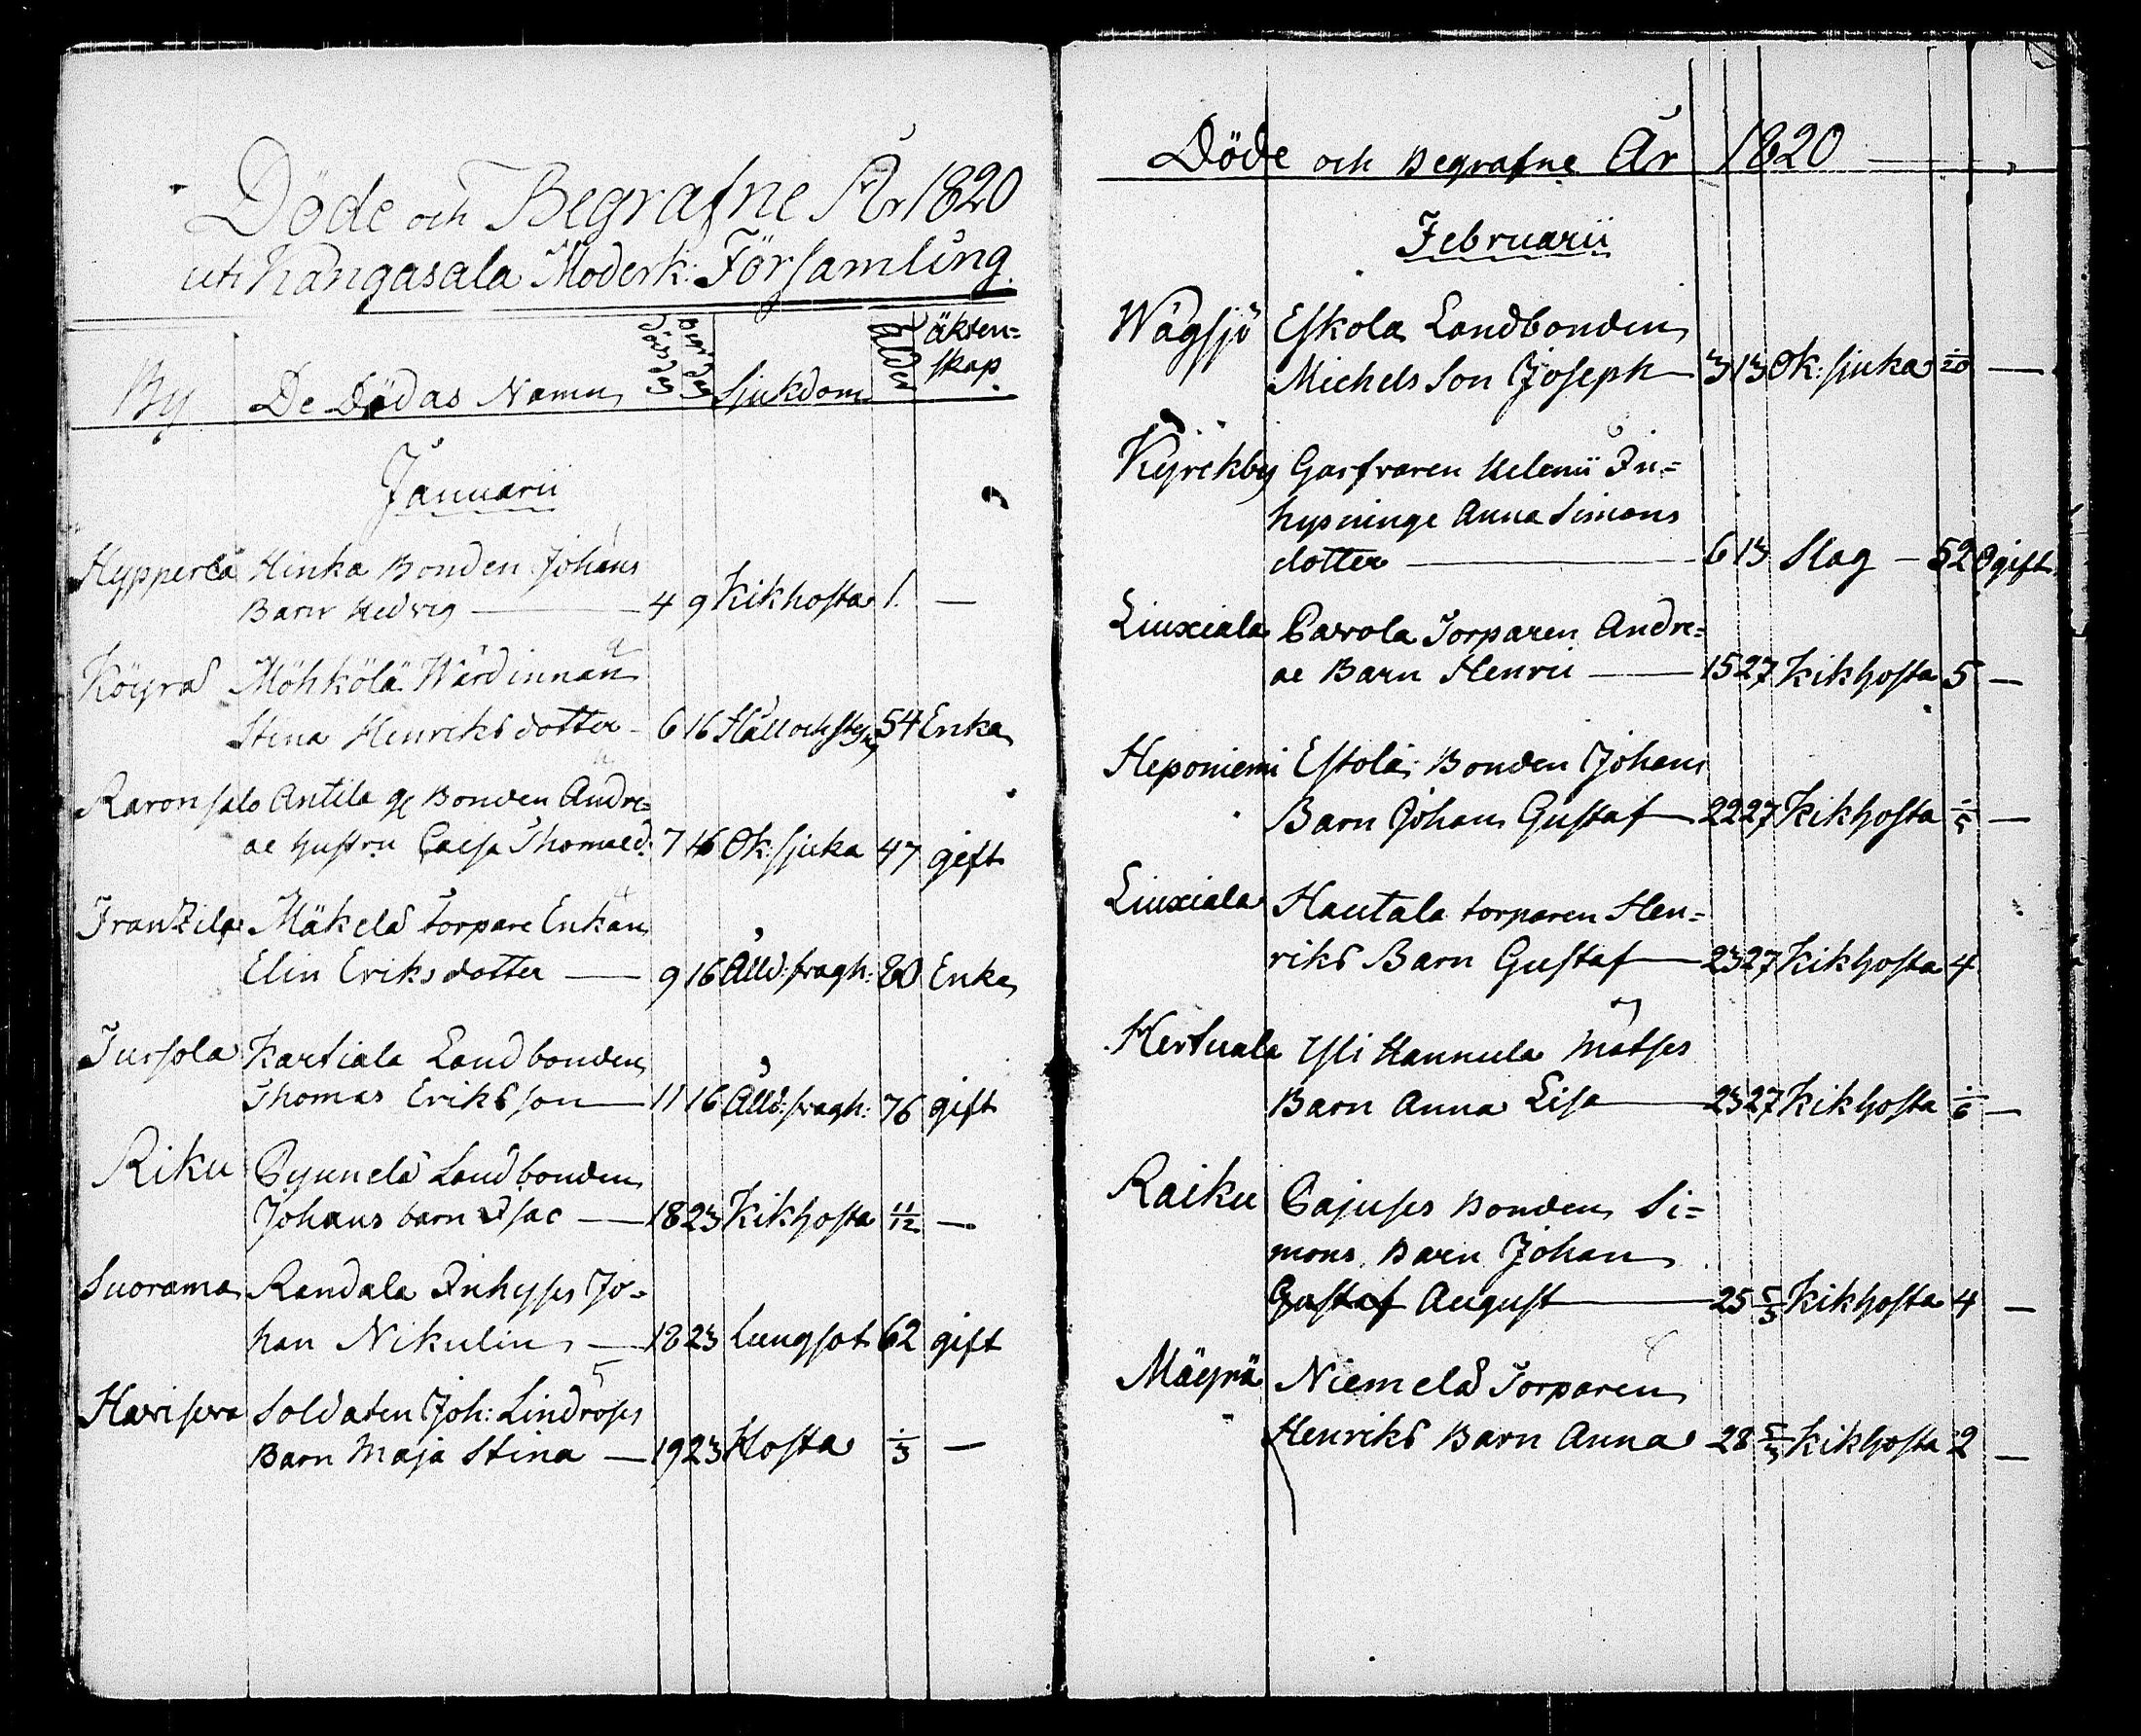 Döde och Begrafne År 1820
uti Kangasala Moderk: Församling
By De Dödas Namn Dödsdag Begr:dag Sjukdom Ålder äkten=
skap
Januarii
Hypperlä Hinka Bonden Johans
Barn Hedvig — 4 9 Kikhosta 1. —
Köyrä Möhkölä Wärdinnan
Stina Henriks dotter - 6 16 Håll och styng 54 Enka
Raronsalo Antila Bonden Andre=
ae hustru Caisa Thomæd: 7 16 Ok: sjuka 47 gift
Franzila Mäkelä Torpare Enkan
Elin Eriksdotter — 9 16 Ålld: bragh: 80 Enka
Jussola Kartiala Landbonden
Thomas Eriksson — 11 16 Ålld: bragh: 76 gift
Riku Pynnelä Landbonden
Johans barn Isac — 18 23 Kikhosta 11/12 —
Suorama Randala Inhyses Jo=
han Nikulin — 18 23 lungsot 62 gift
Havisevo Soldaten Joh: Lindroses
Barn Maja Stina — 19 23 Hosta ÷/3 —
Döde och Begrafne År 1820
Februarii
Wägsjö Eskola Landbonden
Michels Son Joseph — 3 13 Ok: sjuka ÷/20 —
Kyrckby Garfvaren Helenii In=
hysninge Anna Simons
dotter — 6 13 Slag — 52 Ogift
Liuxiala Pavola Torparen Andre=
ae Barn Henrii — 15 27 Kikhosta 5 —
Heponiemi Estolä Bonden Johans
Barn Johan Gustaf — 22 27 Kikhosta ÷/5 —
Liuxiala Hautala torparen Hen=
riks Barn Gustaf — 23 27 Kikhosta 4
Hertuala Yli Hannula Matses
Barn Anna Lisa — 23 27 Kikhosta ÷/6 —
Raiku Pajuses Bonden Si=
mons Barn Johan
Gustaf August — 25 5/3 Kikhosta 4 —
Mäyrä Niemelä Torparen
Henriks Barn Anna 28 5/3 Kikhosta 2 —